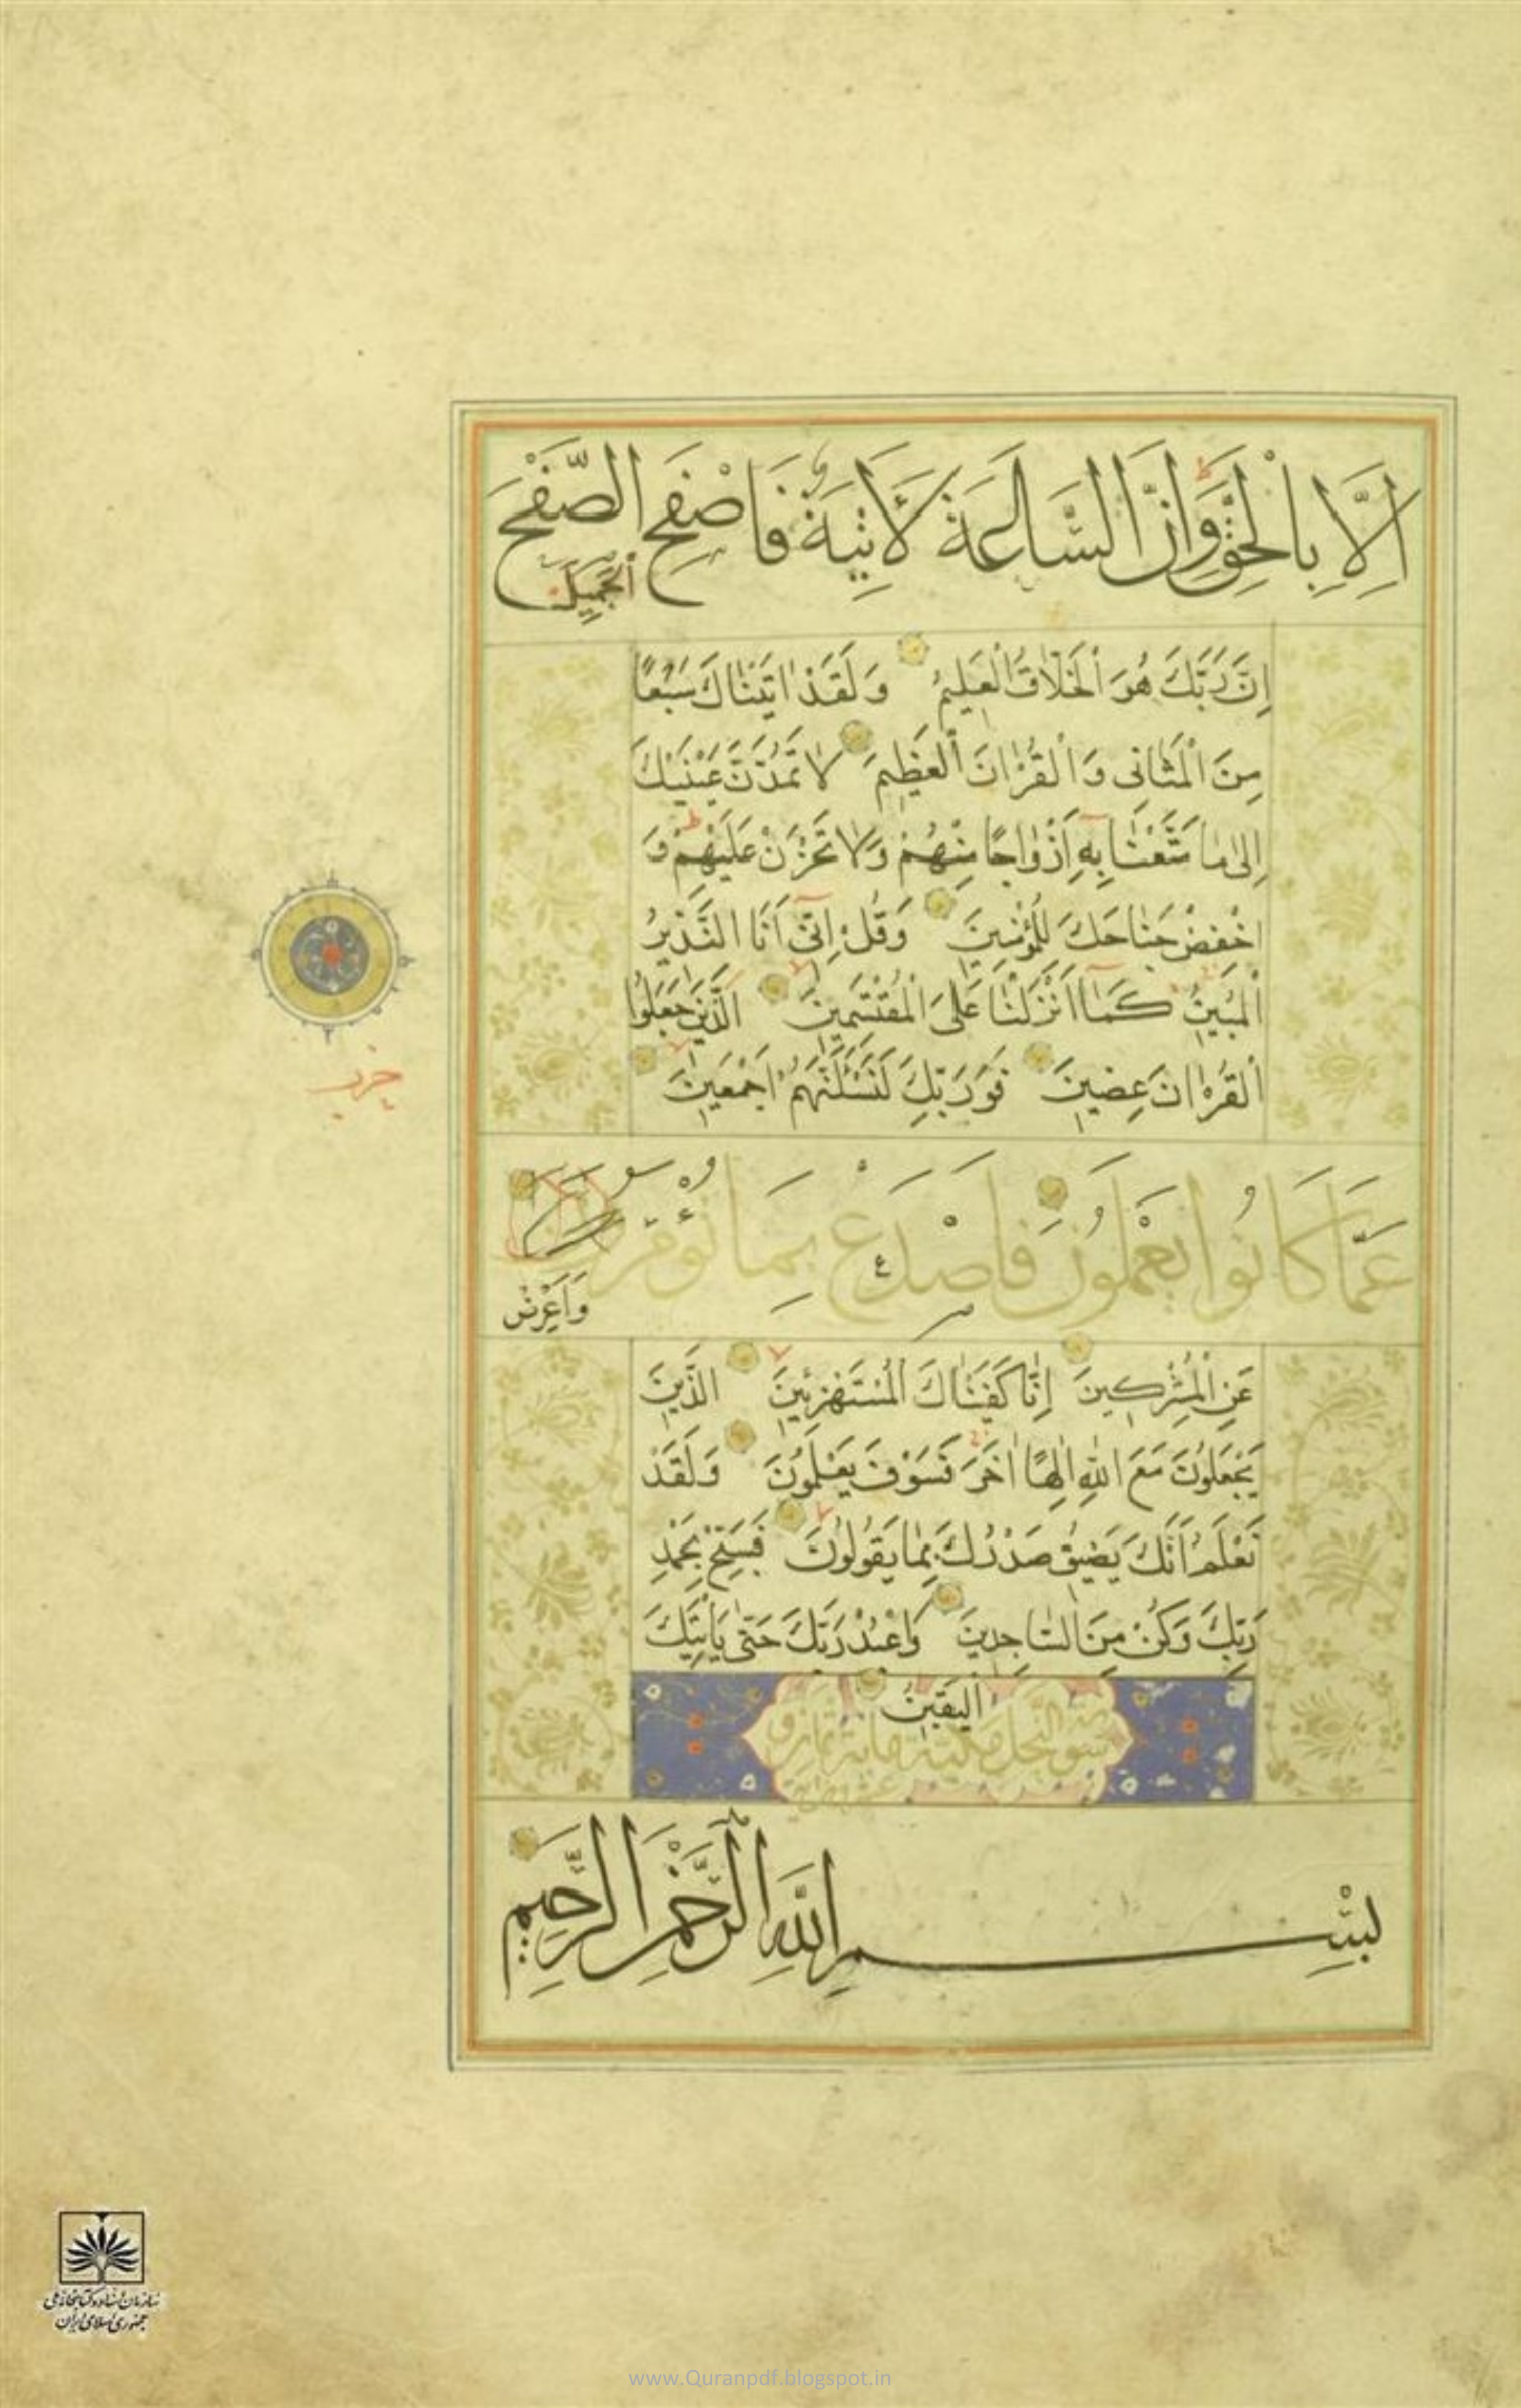 اِلَّا بِالْحَقِّ وَاِنَّ السَّاعَةَ لَاٰتِيَةٌ فَاصْفَحِ الصَّفْحَ
الْجَمِيلَ
اِنَّ رَبَّكَ هُوَ الْخَلَّاقُ الْعَلِيمُ وَلَقَدْ اٰتَيْنَاكَ سَبْعًا
مِنَ الْمَثَانِى وَالْقُرْاٰنَ الْعَظِيمَ لَا تَمُدَّنَّ عَيْنَيْكَ
اِلٰى مَا مَتَّعْنَا بِهِ اَزْوَاجًا مِنْهُمْ وَلَا تَحْزَنْ عَلَيْهِمْ وَ
اخْفِضْ جَنَاحَكَ لِلْمُؤْمِنِينَ وَقُلْ اِنِّى اَنَا النَّذِيرُ
الْمُبِينُ كَمَا اَنْزَلْنَا عَلَى الْمُقْتَسِمِينَ الَّذِينَ جَعَلُوا
الْقُرْاٰنَ عِضِينَ فَوَرَبِّكَ لَنَسْئَلَنَّهُمْ اَجْمَعِينَ
عَمَّا كَانُوا يَعْمَلُونَ فَاصْدَعْ بِمَا تُؤْمَرُ
وَاَعْرِضْ
عَنِ الْمُشْرِكِينَ اِنَّا كَفَيْنَاكَ الْمُسْتَهْزِئِينَ الَّذِينَ
يَجْعَلُونَ مَعَ اللّٰهِ اِلٰهًا اٰخَرَ فَسَوْفَ يَعْلَمُونَ وَلَقَدْ
نَعْلَمُ اَنَّكَ يَضِيقُ صَدْرُكَ بِمَا يَقُولُونَ فَسَبِّحْ بِحَمْدِ
رَبِّكَ وَكُنْ مِنَ السَّاجِدِينَ وَاعْبُدْ رَبَّكَ حَتّٰى يَأْتِيَكَ
الْيَقِينُ
سورة النحل مكية مائة ثمان و
عشرون اية
بِسْمِ اللّٰهِ الرَّحْمٰنِ الرَّحِيمِ
سازمان اسناد و کتابخانه ملی
جمهوری اسلامی ایران
www.Quranpdf.blogspot.in